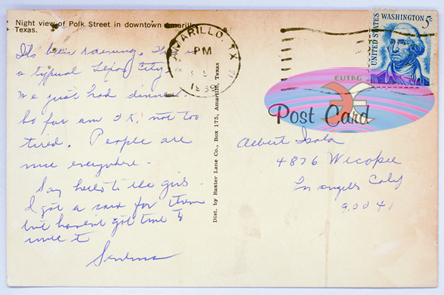 Night view of Polk Street in downtown Amarillo,
Texas.
It's been raining. This is
a typical Texas City.
We just had dinner
So far am O.K. not too
tired. People are
nice everywhere.
Say hello to the girls.
I got a card for them
but haven't got time to
write it
Dist. by Baxter Lane Co., Box 175, Amarillo, Texas
AMARILLO, TX
PM
UNITED STATES
WASHINGTON 5¢
Post Card
Albert
4876 Wicopee
Los Angeles Calif
90041